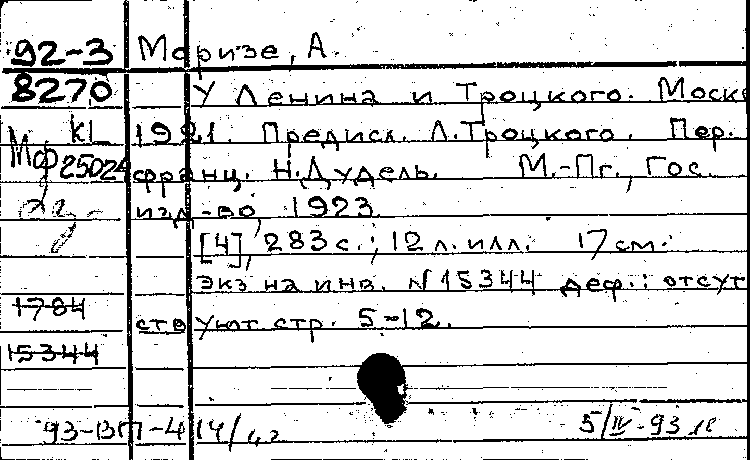 92-3 Моризе, А.
8270 У Ленина и Троцкого. Моск
КL 1921. Предисл. Л.Троцкого. Пер.
Мф 25024 франц. Н.Дудель. М.-Пг., Гос.
изд-во, 1923.
[4], 283 с.; 12 л. илл. 17 см.
Экз на инв. N 15344 деф.: отсут
1784 ствуют стр. 5-12.
15344
93-ВП-414/
5/IV-93